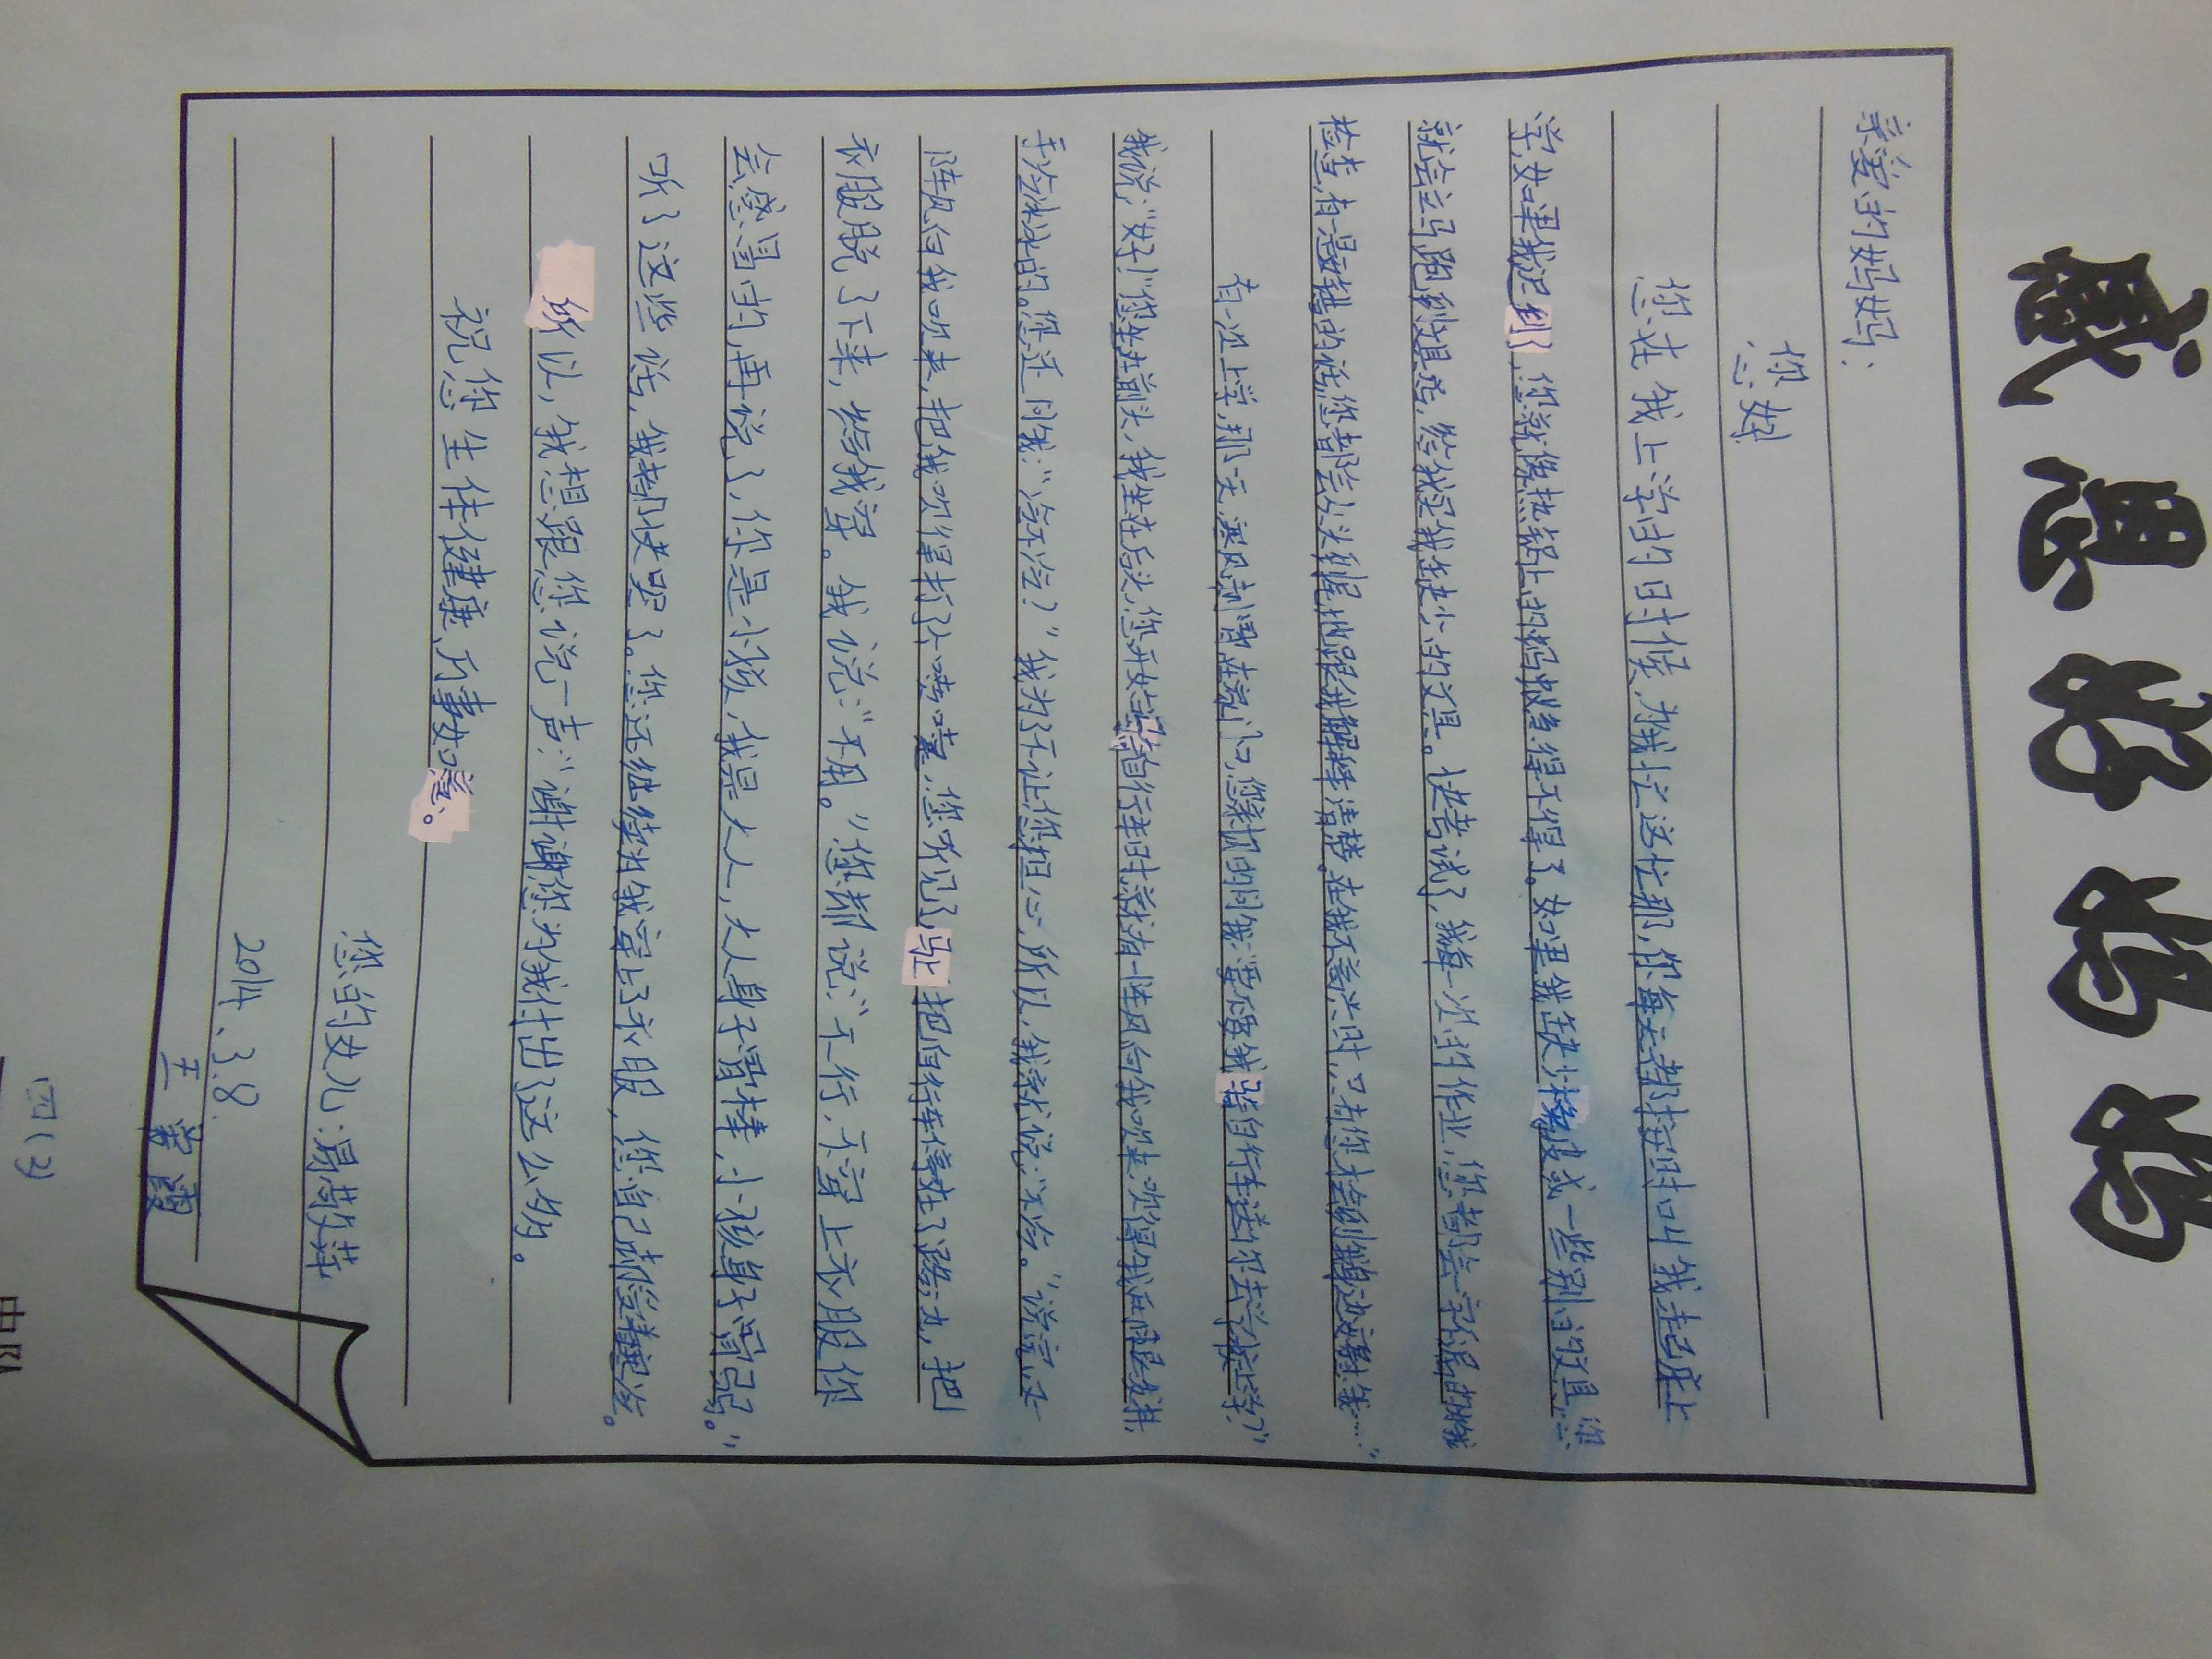 感恩好妈妈
亲爱的妈妈：
您好
您在我上学的时候，为我忙这忙那，您每天都按时叫我起床上
学，如果我迟到了，您就像热锅上的蚂蚁急得不得了。如果我缺少橡皮或一些别的文具，您
就会立马跑到文具店，给我买我缺少的文具。快考试了，我每一次的作业，您都会一字不漏的帮我
检查，有一题错的话，您都会从头到尾地跟我解释清楚。在我不高兴时，只有您才会到我身边安慰我……”
有一次上学，那一天，寒风刺骨，在家门口，您亲切的问我：“要不要我骑自行车送你去学校上学？”
我说：“好！”您坐在前头，我坐在后头，您开始骑自行车时，就有一阵风向我吹来，吹得我两腿发抖，
手冷冰冰的。您还问我：“冷不冷？”我为了不让您担心，所以，我就说：“不冷。”说完，又一
阵风向我吹来，把我吹得打了个喷嚏，您听见了，马上把自行车停在了路边，把
衣服脱了下来，给我穿。我说：“不用。”您却说：“不行，不穿上衣服你
会感冒的，再说了，你是小孩，我是大人，大人身子骨棒，小孩身子骨弱。”
听了这些话，我都快哭了。您还继续为我穿上了衣服，您自己却
所以，我想跟您说一声：“谢谢您为我付出了这么多。
祝您生体健康，万事如意。
您的女儿：易
2014、3.8.
四(2)
中队